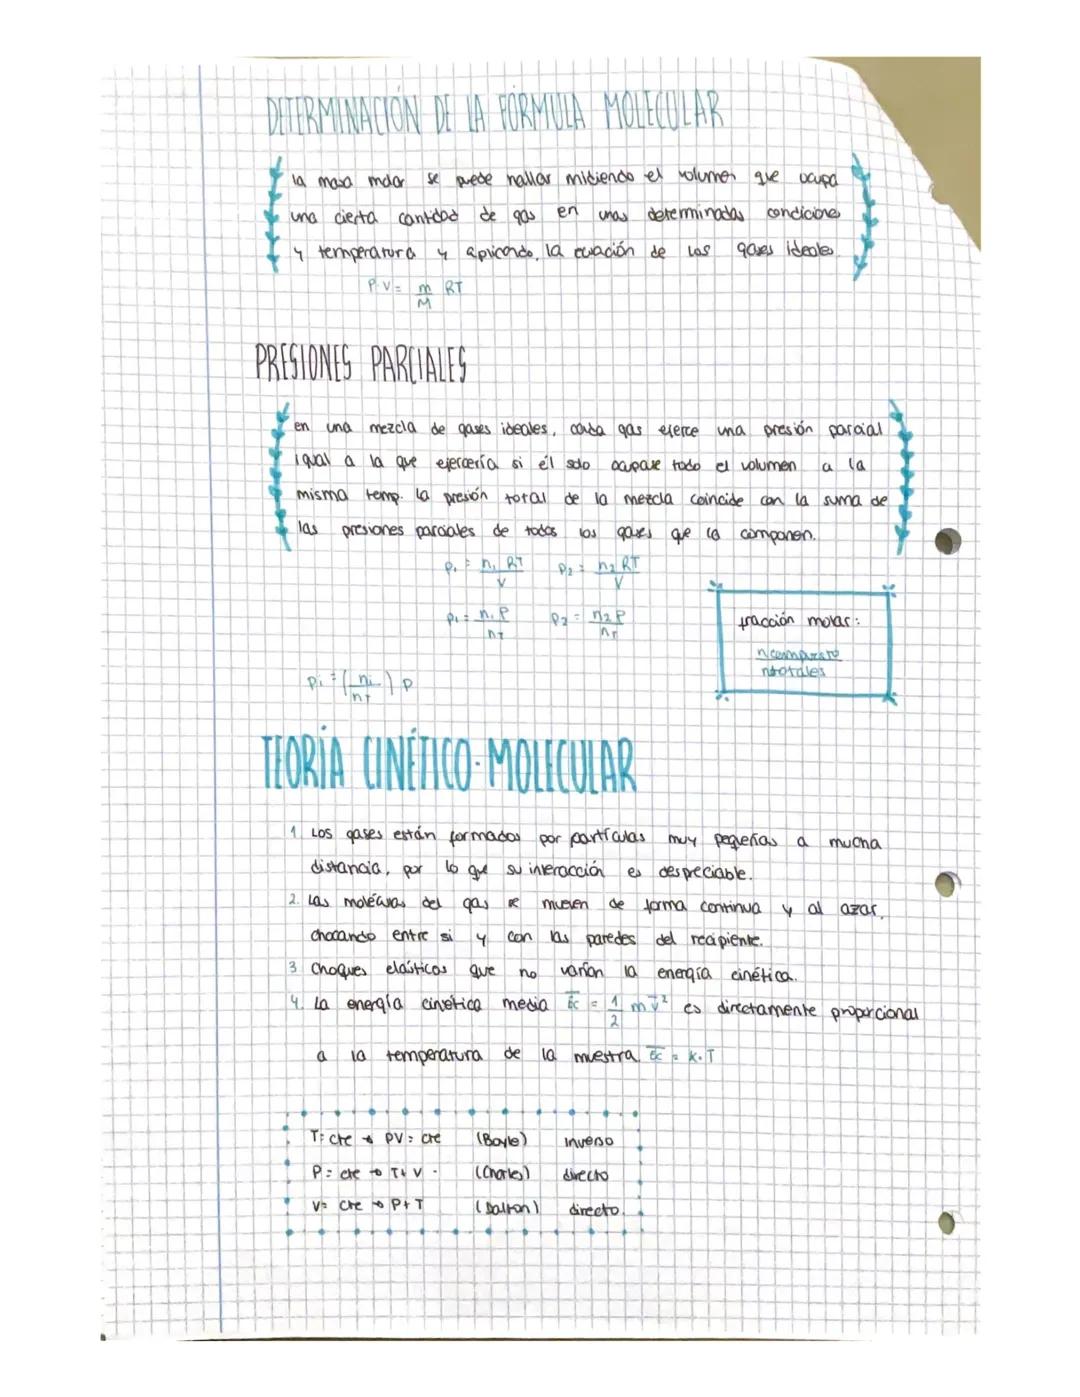 DETERMINACIÓN DE LA FÓRMULA MOLECULAR
la masa molar se puede hallar midiendo el volumen que ocupa
una cierta cantidad de gas en unas determinadas condiciones
y temperatura y aplicando, la ecuación de los gases ideales.
P·V = m/M RT
PRESIONES PARCIALES
en una mezcla de gases ideales, cada gas ejerce una presión parcial
igual a la que ejercería si él solo ocupase todo el volumen a la
misma temp. la presión total de la mezcla coincide con la suma de
las presiones parciales de todos los gases que la componen.
P₁ = n₁ RT/V P₂ = n₂ RT/V
P₁ = n₁ P/nT P₂ = n₂ P/nT
fracción molar:
n compuesto
n totales
Pi = (ni/nT) P
TEORÍA CINÉTICO-MOLECULAR
1 Los gases están formados por partículas muy pequeñas a mucha
distancia, por lo que su interacción es despreciable.
2. Las moléculas del gas se mueven de forma continua y al azar,
chocando entre si y con las paredes del recipiente.
3 Choques elásticos que no varían la energía cinética.
4. La energía cinética media Ec = 1/2 m v² es directamente proporcional
a la temperatura de la muestra Ec = K·T
T= cte → PV= cte (Boyle) inverso
P= cte → T+ V - (Charles) directo
V= cte → P+ T (Dalton) directo.